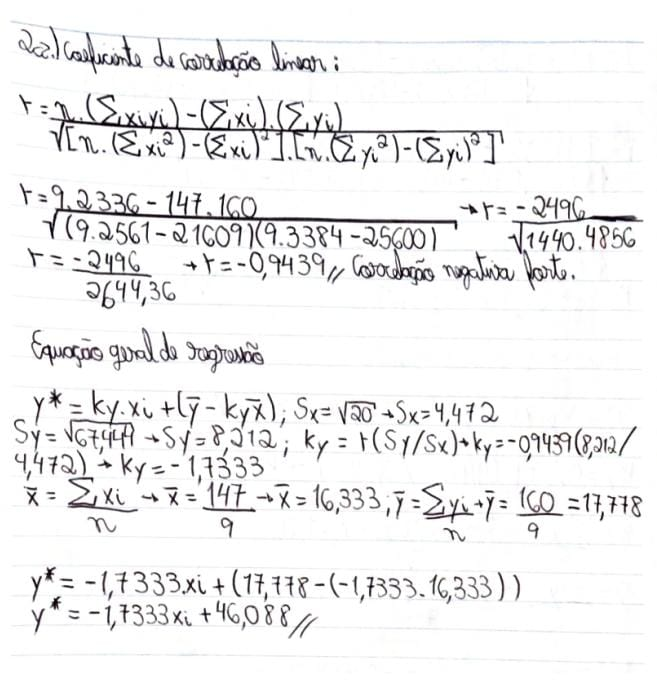 2a.) Coeficiente de correlação linear:
r = n.(∑xiyi) - (∑xi).(∑yi) / √[n.(∑xi²) - (∑xi)²].[n.(∑yi²) - (∑yi)²]
r = 9.2336 - 147.160 / √(9.2561 - 21609)(9.3384 - 25600) → r = -2496 / √1440.4856
r = -2496 / 2644,36 → r = -0,9439 // Correlação negativa forte.
Equação geral de regressão
y* = ky.xi + (ȳ - kyx̄); Sx = √20 → Sx = 4,472
Sy = √67,444 → Sy = 8,212; ky = r(Sy/Sx) → ky = -0,9439(8,212/
4,472) → ky = -1,7333
x̄ = ∑xi / n → x̄ = 147 / 9 → x̄ = 16,333; ȳ = ∑yi / n → ȳ = 160 / 9 = 17,778
y* = -1,7333.xi + (17,778 - (-1,7333.16,333))
y* = -1,7333xi + 46,088 //